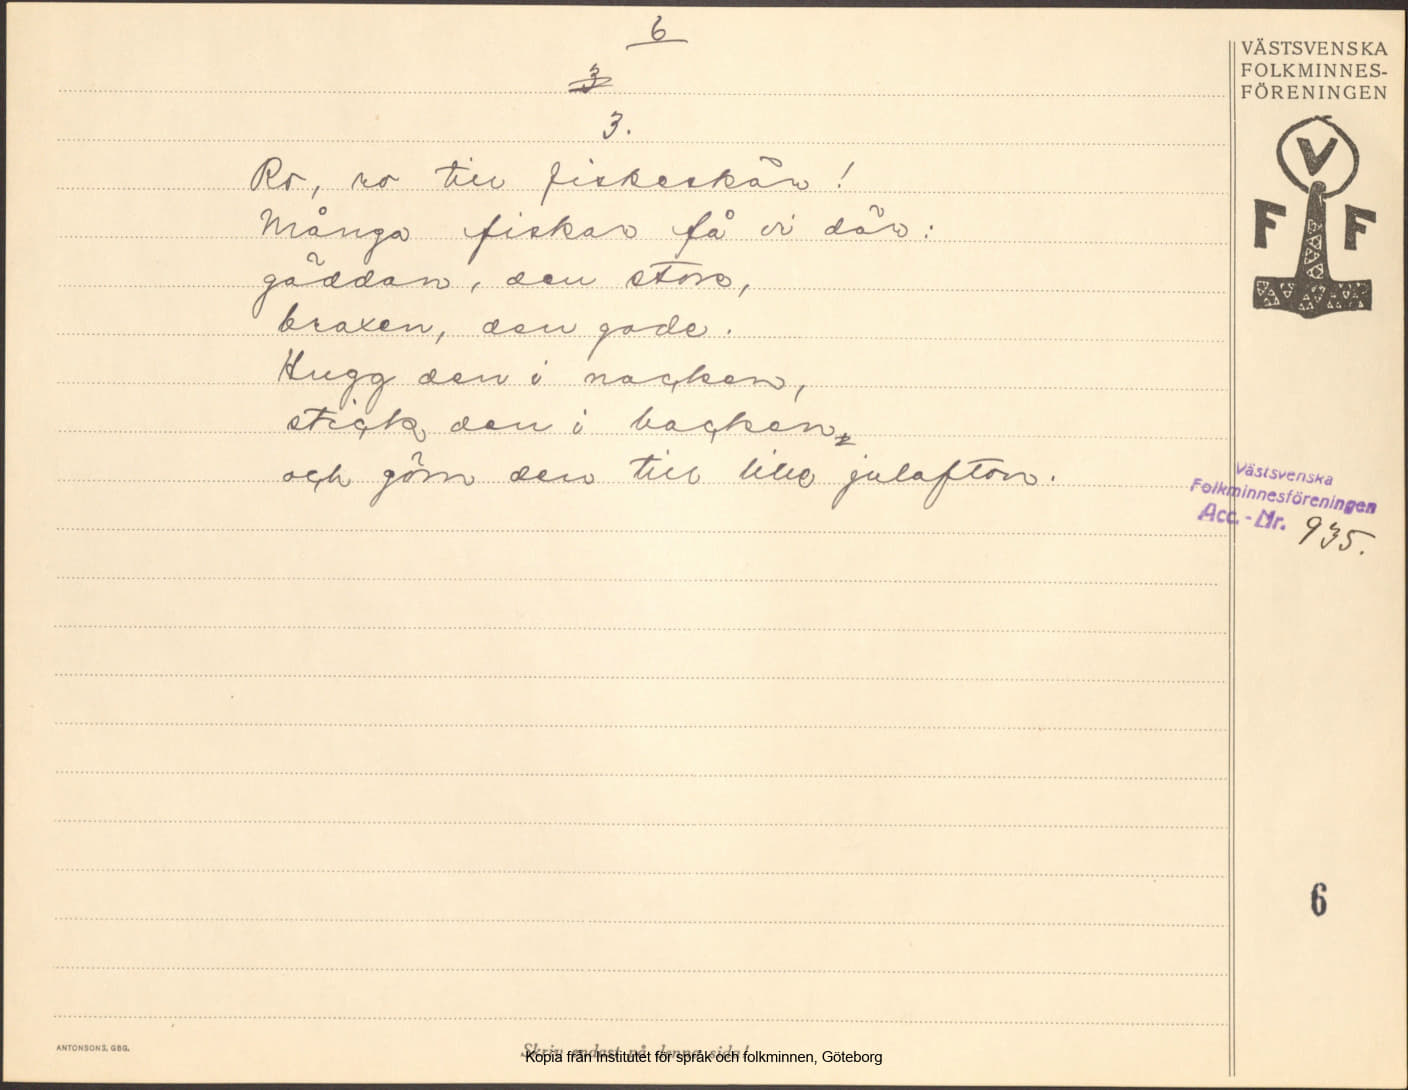 6
3
3.
VÄSTSVENSKA
FOLKMINNES-
FÖRENINGEN
V
F F
Ro, ro till fiskeskär!
Många fiskar få vi där:
gäddan, den stora,
braxen, den gode.
Hugg den i nacken,
stick den i backen,
och göm den till lilla julafton.
Västsvenska
Folkminnesföreningen
Acc. - Nr. 935.
6
ANTONSONS, GBG.
Skriv endast på denna sida!
Kopia från Institutet för språk och folkminnen, Göteborg